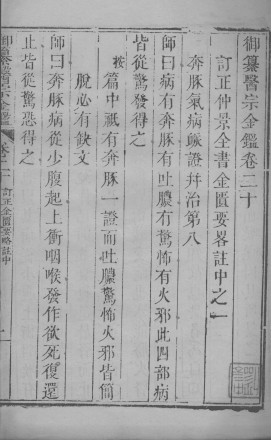 御纂醫宗金鑑卷二十
訂正仲景全書金匱要畧註中之一
奔豚氣病脈證并治第八
師曰病有奔豚有吐膿有驚怖有火邪此四部病
皆從驚發得之
按篇中祇有奔豚一證而吐膿驚怖火邪皆簡
脫必有缺文
師曰奔豚病從少腹起上衝咽喉發作欲死復還
止皆從驚恐得之
御纂醫宗金鑑
卷二十
訂正金匱要略註中
一